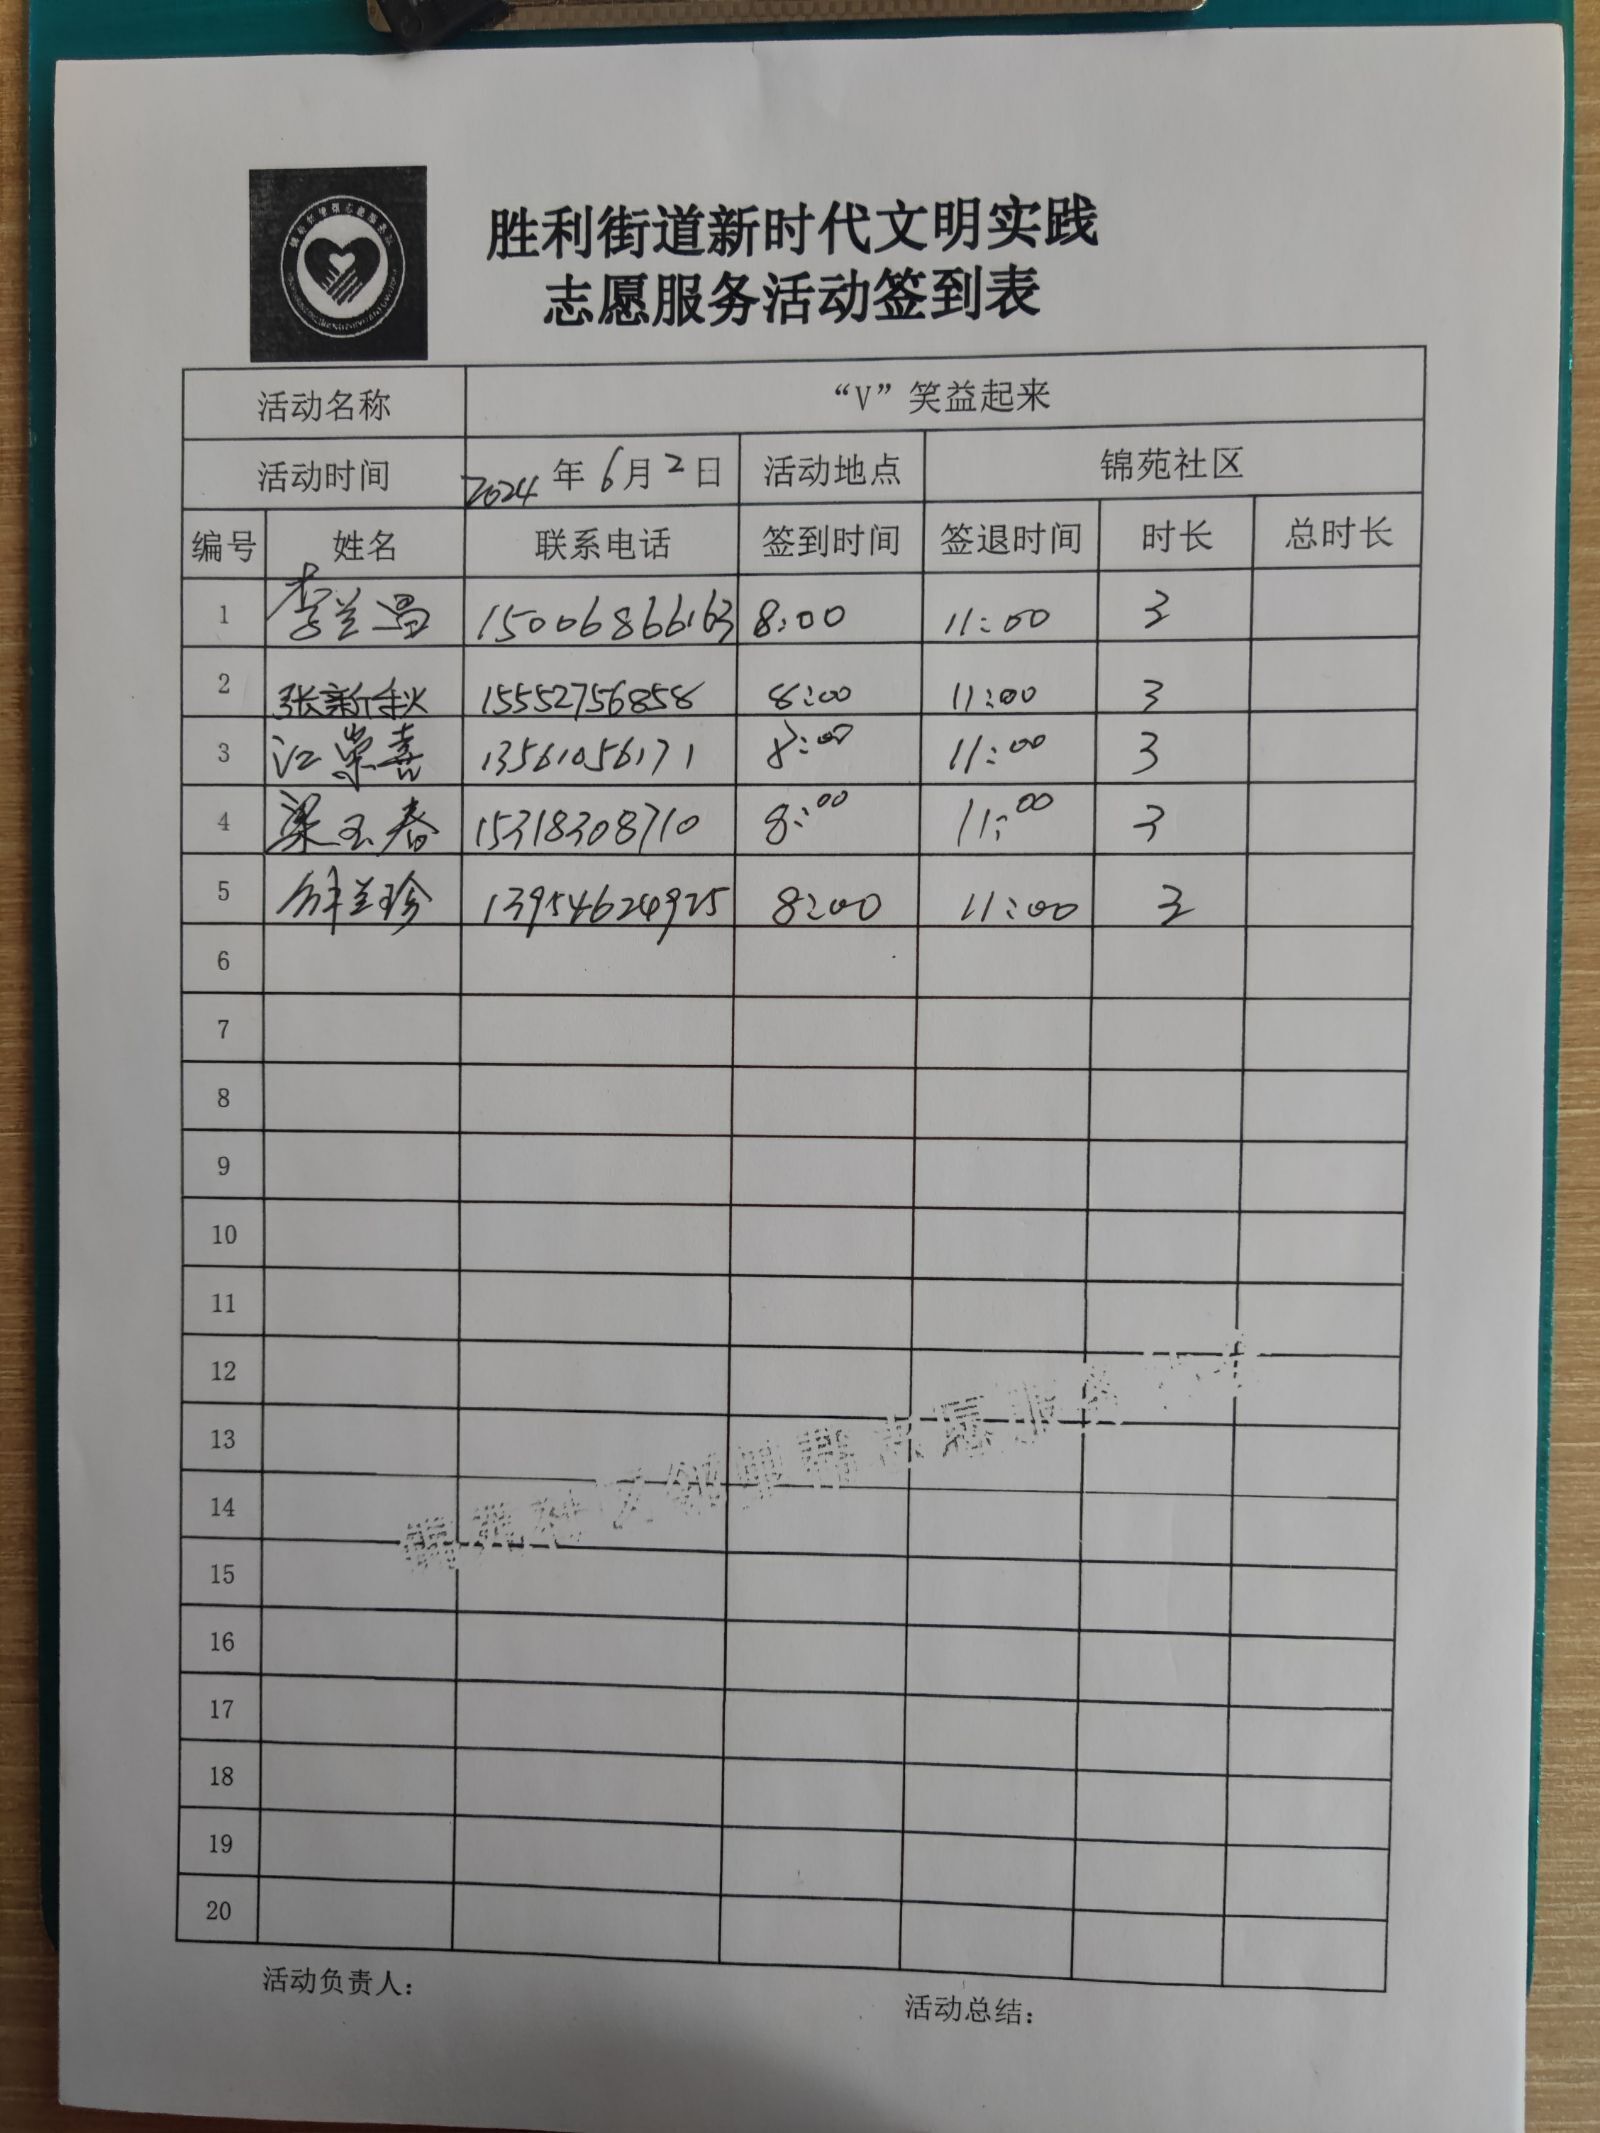 胜利街道新时代文明实践
志愿服务活动签到表
活动名称 “V”笑益起来
活动时间 2024年6月2日 活动地点 锦苑社区
编号 姓名 联系电话 签到时间 签退时间 时长 总时长
1 李兰昌 15006866163 8:00 11:00 3
2 张新秋 15552756858 8:00 11:00 3
3 江崇喜 13561056171 8:00 11:00 3
4 梁玉春 15318308710 8:00 11:00 3
5 兰珍 13954624925 8:00 11:00 3
6
7
8
9
10
11
12
13
14
15
16
17
18
19
20
锦苑社区邻里帮志愿服务
活动负责人：
活动总结：